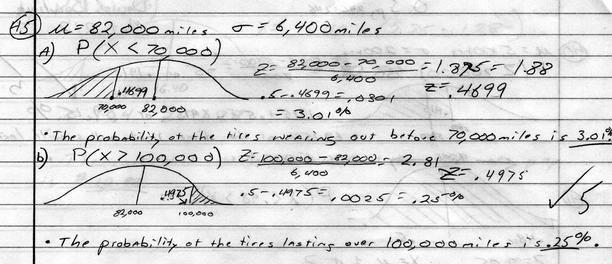 45) μ = 82,000 miles σ = 6,400 miles
A) P(X < 70,000)
Z = 82,000 - 70,000 / 6,400 = 1.875 = 1.88
Z = .4699
.5 - .4699 = .0301
= 3.01%
.4699
70,000 82,000
• The probability of the tires wearing out before 70,000 miles is 3.01%
b) P(X > 100,000) Z = 100,000 - 82,000 / 6,400 = 2.81
Z = .4975
.5 - .4975 = .0025 = .25%
.4975
82,000 100,000
✓5
• The probability of the tires lasting over 100,000 miles is .25%.